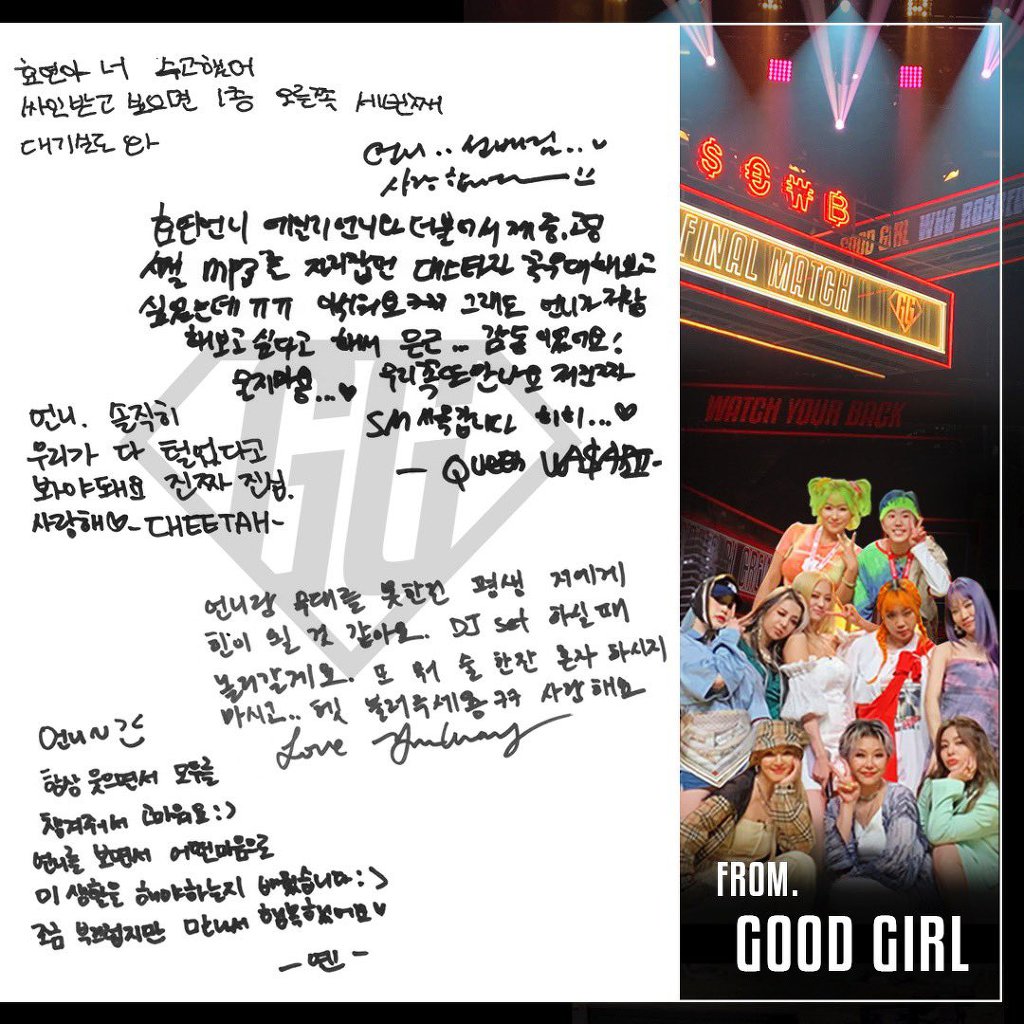 효연아 너 수고했어
싸인받고 보으면 1층 오른쪽 세번째
대기실로 와
언니.. 선배님..♡
사랑합니다
효연언니 언니와 더불어서 제 중, 고딩
시절 mp3를
싶었는데 ㅠㅠ 그래도 언니가 저랑
해보고싶다고 해서 은근... 감동 이었어요!
울지마용...♡ 우리 꼭 또 만나요
SM 써육갑니다 히히...♡
— QUEEN WA$ABII-
언니. 솔직히
우리가 다 털었다고
봐야돼요 진짜 진심.
사랑해♡ - CHEETAH -
언니랑 무대를 못한건 평생 저에게
한이 될 것 같아요. DJ set 하실 때
놀러갈게요. 또 뭐 술 한잔 혼자 하시지
마시고.. 불러주세용 ㅋㅋ 사랑해요
Love
언니~
항상 웃으면서 모두를
챙겨주셔서 고마워요:)
언니를 보면서 어떤마음으로
이 생활을 해야하는지 배웠습니다:>
조금 부끄럽지만 만나서 행복했어요♡
- 옌 -
$ € ₩ ฿
GOOD GIRL WHO
FINAL MATCH GG
WATCH YOUR BACK
GG
FROM.
GOOD GIRL